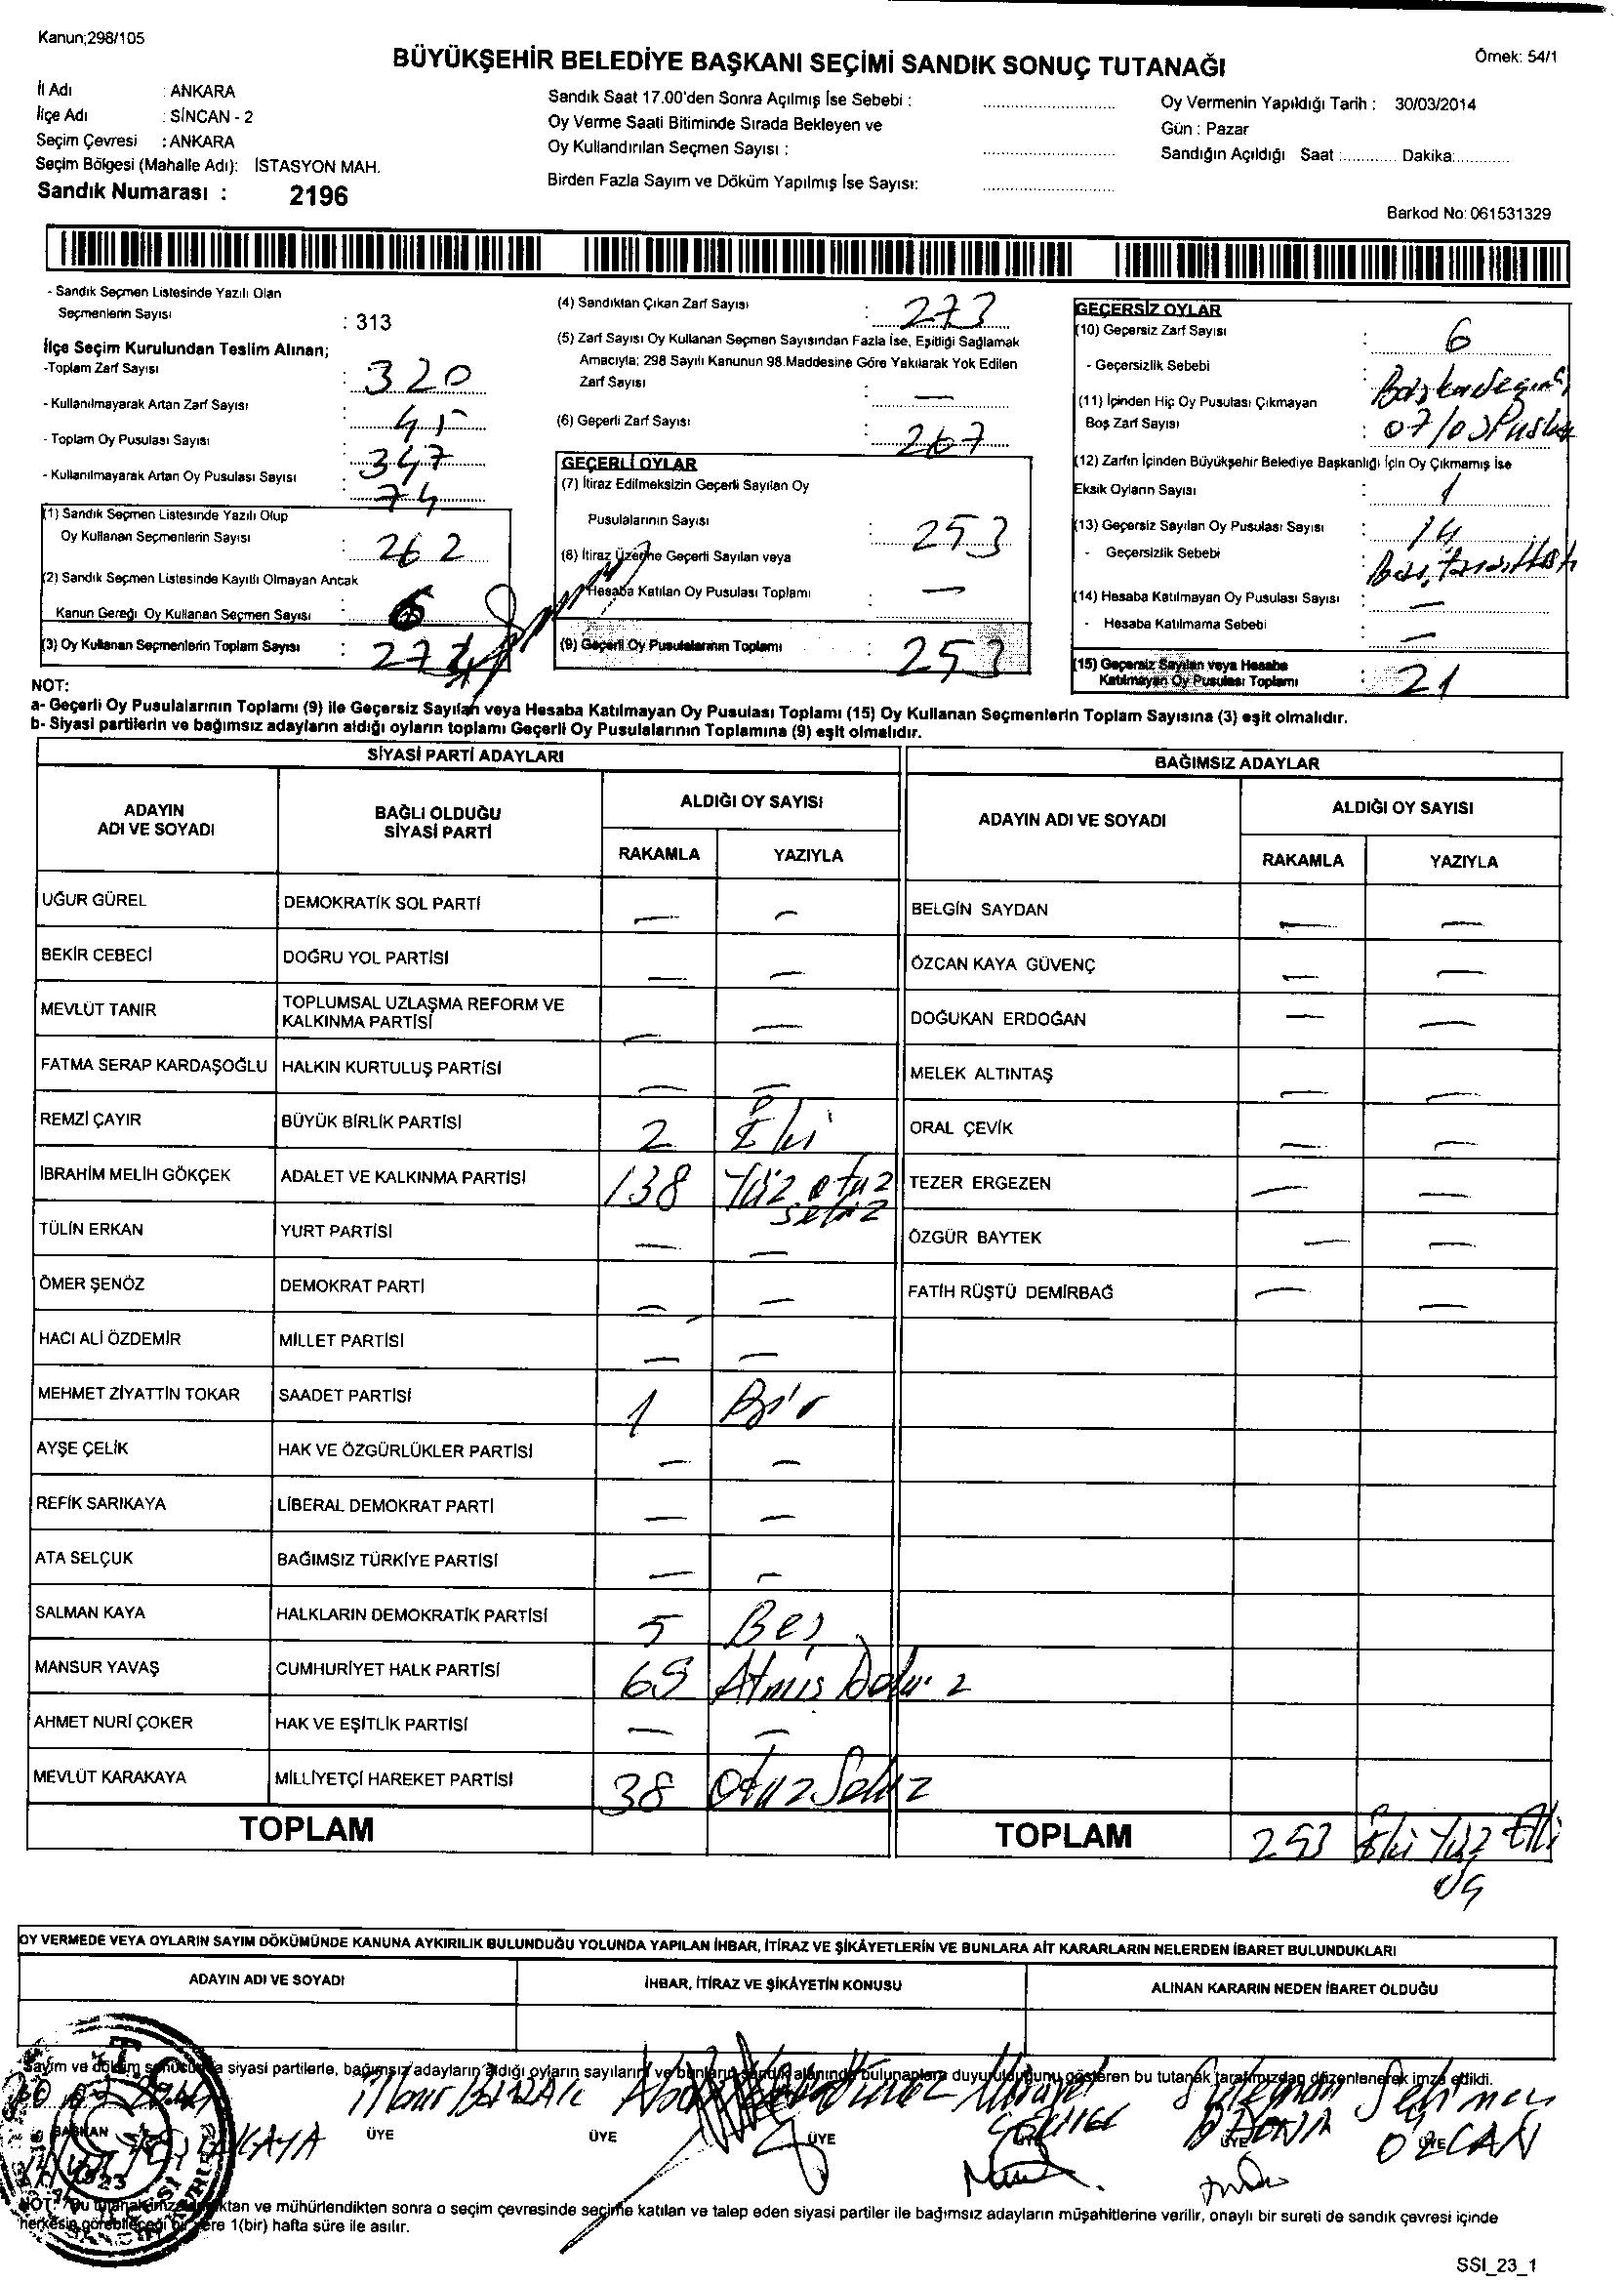 Kanun;298/105
BÜYÜKŞEHİR BELEDİYE BAŞKANI SEÇİMİ SANDIK SONUÇ TUTANAĞI
Örnek: 54/1
İl Adı : ANKARA
İlçe Adı : SİNCAN - 2
Seçim Çevresi : ANKARA
Seçim Bölgesi (Mahalle Adı): İSTASYON MAH.
Sandık Numarası : 2196
Sandık Saat 17.00'den Sonra Açılmış İse Sebebi :
Oy Verme Saati Bitiminde Sırada Bekleyen ve
Oy Kullandırılan Seçmen Sayısı :
Birden Fazla Sayım ve Döküm Yapılmış İse Sayısı:
Oy Vermenin Yapıldığı Tarih : 30/03/2014
Gün : Pazar
Sandığın Açıldığı Saat :............ Dakika:............
Barkod No: 061531329
- Sandık Seçmen Listesinde Yazılı Olan
Seçmenlerin Sayısı : 313
İlçe Seçim Kurulundan Teslim Alınan;
-Toplam Zarf Sayısı : 320
- Kullanılmayarak Artan Zarf Sayısı : 45
- Toplam Oy Pusulası Sayısı : 347
- Kullanılmayarak Artan Oy Pusulası Sayısı : 74
(1) Sandık Seçmen Listesinde Yazılı Olup
Oy Kullanan Seçmenlerin Sayısı : 262
(2) Sandık Seçmen Listesinde Kayıtlı Olmayan Ancak
Kanun Gereği Oy Kullanan Seçmen Sayısı :
(3) Oy Kullanan Seçmenlerin Toplam Sayısı :
(4) Sandıktan Çıkan Zarf Sayısı : 273
(5) Zarf Sayısı Oy Kullanan Seçmen Sayısından Fazla İse, Eşitliği Sağlamak
Amacıyla; 298 Sayılı Kanunun 98.Maddesine Göre Yakılarak Yok Edilen
Zarf Sayısı : —
(6) Geçerli Zarf Sayısı : 267
GEÇERLİ OYLAR
(7) İtiraz Edilmeksizin Geçerli Sayılan Oy
Pusulalarının Sayısı : 253
(8) İtiraz Üzerine Geçerli Sayılan veya
Hesaba Katılan Oy Pusulası Toplamı : —
(9) Geçerli Oy Pusulalarının Toplamı : 253
GEÇERSİZ OYLAR
(10) Geçersiz Zarf Sayısı : 6
- Geçersizlik Sebebi :
(11) İçinden Hiç Oy Pusulası Çıkmayan
Boş Zarf Sayısı :
(12) Zarfın İçinden Büyükşehir Belediye Başkanlığı İçin Oy Çıkmamış İse
Eksik Oyların Sayısı : 1
(13) Geçersiz Sayılan Oy Pusulası Sayısı : 14
- Geçersizlik Sebebi
(14) Hesaba Katılmayan Oy Pusulası Sayısı : —
- Hesaba Katılmama Sebebi : —
(15) Geçersiz Sayılan veya Hesaba
Katılmayan Oy Pusulası Toplamı : 21
NOT:
a- Geçerli Oy Pusulalarının Toplamı (9) ile Geçersiz Sayılan veya Hesaba Katılmayan Oy Pusulası Toplamı (15) Oy Kullanan Seçmenlerin Toplam Sayısına (3) eşit olmalıdır.
b- Siyasi partilerin ve bağımsız adayların aldığı oyların toplamı Geçerli Oy Pusulalarının Toplamına (9) eşit olmalıdır.
SİYASİ PARTİ ADAYLARI
ADAYIN ADI VE SOYADI BAĞLI OLDUĞU SİYASİ PARTİ ALDIĞI OY SAYISI
RAKAMLA YAZIYLA
UĞUR GÜREL DEMOKRATİK SOL PARTİ — —
BEKİR CEBECİ DOĞRU YOL PARTİSİ — —
MEVLÜT TANIR TOPLUMSAL UZLAŞMA REFORM VE KALKINMA PARTİSİ — —
FATMA SERAP KARDAŞOĞLU HALKIN KURTULUŞ PARTİSİ — —
REMZİ ÇAYIR BÜYÜK BİRLİK PARTİSİ 2 İki
İBRAHİM MELİH GÖKÇEK ADALET VE KALKINMA PARTİSİ 138 Yüz otuz sekiz
TÜLİN ERKAN YURT PARTİSİ — —
ÖMER ŞENÖZ DEMOKRAT PARTİ — —
HACI ALİ ÖZDEMİR MİLLET PARTİSİ — —
MEHMET ZİYATTİN TOKAR SAADET PARTİSİ 1 Bir
AYŞE ÇELİK HAK VE ÖZGÜRLÜKLER PARTİSİ — —
REFİK SARIKAYA LİBERAL DEMOKRAT PARTİ — —
ATA SELÇUK BAĞIMSIZ TÜRKİYE PARTİSİ — —
SALMAN KAYA HALKLARIN DEMOKRATİK PARTİSİ 5 Beş
MANSUR YAVAŞ CUMHURİYET HALK PARTİSİ 69 Atmış Dokuz
AHMET NURİ ÇOKER HAK VE EŞİTLİK PARTİSİ — —
MEVLÜT KARAKAYA MİLLİYETÇİ HAREKET PARTİSİ 38 Otuz Sekiz
TOPLAM
BAĞIMSIZ ADAYLAR
ADAYIN ADI VE SOYADI ALDIĞI OY SAYISI
RAKAMLA YAZIYLA
BELGİN SAYDAN — —
ÖZCAN KAYA GÜVENÇ — —
DOĞUKAN ERDOĞAN — —
MELEK ALTINTAŞ — —
ORAL ÇEVİK — —
TEZER ERGEZEN — —
ÖZGÜR BAYTEK — —
FATİH RÜŞTÜ DEMİRBAĞ — —
TOPLAM 253 İki Yüz Elli
üç
OY VERMEDE VEYA OYLARIN SAYIM DÖKÜMÜNDE KANUNA AYKIRILIK BULUNDUĞU YOLUNDA YAPILAN İHBAR, İTİRAZ VE ŞİKÂYETLERİN VE BUNLARA AİT KARARLARIN NELERDEN İBARET BULUNDUKLARI
ADAYIN ADI VE SOYADI İHBAR, İTİRAZ VE ŞİKÂYETİN KONUSU ALINAN KARARIN NEDEN İBARET OLDUĞU
Sayım ve döküm sonucunda siyasi partilerle, bağımsız adayların aldığı oyların sayılarını ve bunların sandık alanında bulunanlara duyurulduğunu gösteren bu tutanak tarafımızdan düzenlenerek imza edildi.
Süleyman Şehmen
BAŞKAN ÜYE ÜYE ÜYE ÜYE ÜYE ÜYE
ÖZCAN
NOT: Bu tutanak imzalandıktan ve mühürlendikten sonra o seçim çevresinde seçime katılan ve talep eden siyasi partiler ile bağımsız adayların müşahitlerine verilir, onaylı bir sureti de sandık çevresi içinde
herkesin görebileceği bir yere 1(bir) hafta süre ile asılır.
SSI_23_1